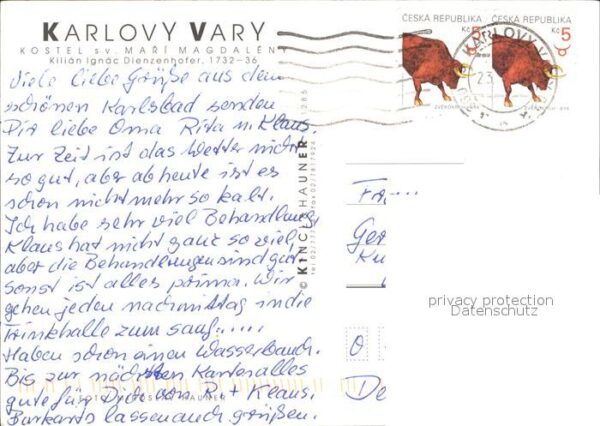 KARLOVY VARY
KOSTEL sv. MAŘÍ MAGDALÉNY
Kilián Ignác Dienzenhofer, 1732-36
ČESKÁ REPUBLIKA
Kč 5
ČESKÁ REPUBLIKA
Kč 5
KARLOVY VARY
Viele liebe Grüße aus dem
schönen Karlsbad senden
Dir liebe Oma Rita u. Klaus.
Zur Zeit ist das Wetter nicht
so gut, aber ab heute ist es
schon nicht mehr so kalt.
Ich habe sehr viel Behandlung,
Klaus hat nicht ganz so viel,
aber die Behandlungen sind gut
sonst ist alles prima. Wir
gehen jeden nachmittag in die
Trinkhalle zum sauf.....
Haben schon einen Wasserbauch.
Bis zur nächsten Karte alles
gute für Dich von R. + Klaus.
Burkards lassen auch grüßen.
© KINCL + HAUNER
FOTO MIROSLAV HAUNER
Ger
O
De
privacy protection
Datenschutz